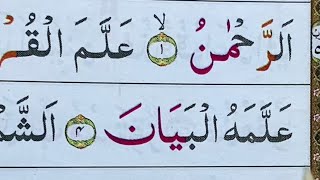 اَلرَّحْمٰنُ ۙ﴿۱﴾ عَلَّمَ الْقُرْ
عَلَّمَهُ الْبَيَانَ ﴿۴﴾ اَلشَّمْ